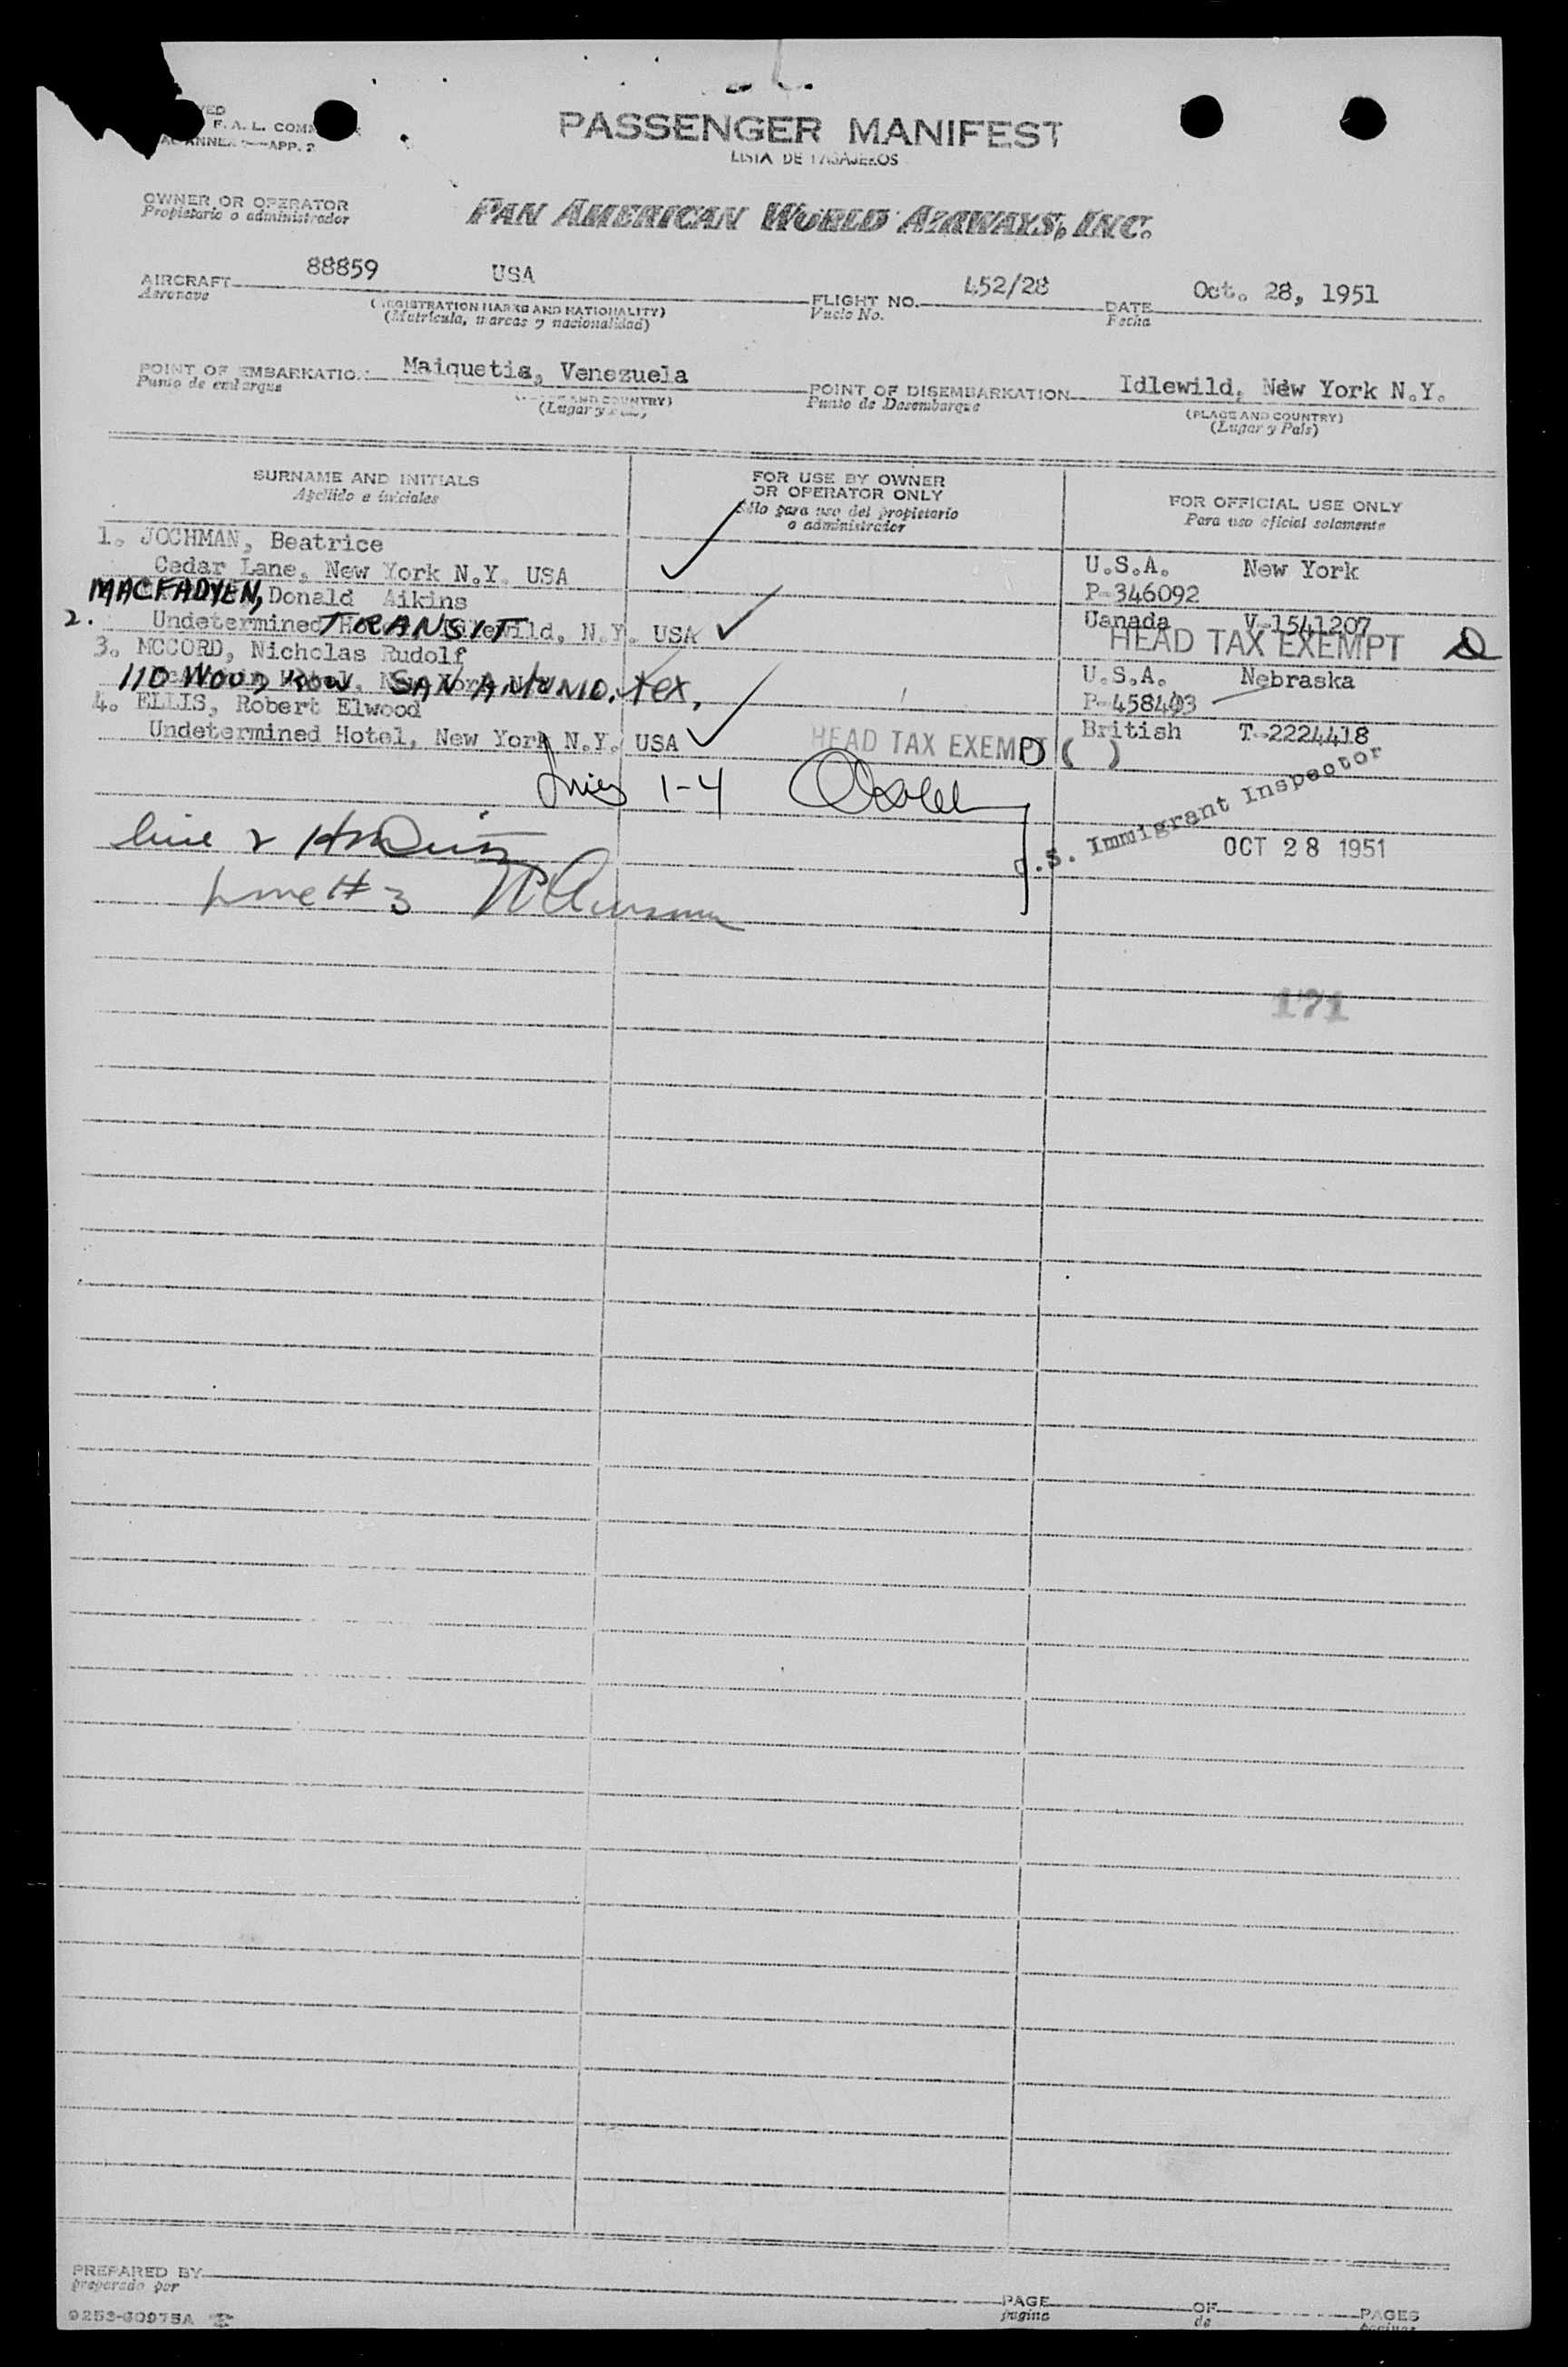 PASSENGER MANIFEST
LISTA DE PASAJEROS
F. A. L.
APP. 2
OWNER OR OPERATOR
Propietario o administrador
PAN AMERICAN WORLD AIRWAYS, INC.
AIRCRAFT 88859 USA FLIGHT NO. 452/28 DATE Oct. 28, 1951
Aeronave Vuelo No. Fecha
(REGISTRATION MARKS AND NATIONALITY)
(Matrícula, marcas y nacionalidad)
POINT OF EMBARKATION Maiquetia, Venezuela POINT OF DISEMBARKATION Idlewild, New York N.Y.
Punto de embarque Punto de Desembarque
(PLACE AND COUNTRY) (PLACE AND COUNTRY)
(Lugar y País) (Lugar y País)
SURNAME AND INITIALS FOR USE BY OWNER OR OPERATOR ONLY FOR OFFICIAL USE ONLY
Apellido e iniciales Sólo para uso del propietario o administrador Para uso oficial solamente
1. JOCHMAN, Beatrice
Cedar Lane, New York N.Y. USA U.S.A. New York
MACFADYEN, Donald Aikins P-346092
2. Undetermined TRANSIT Idlewild, N.Y. USA Canada V-1541207
HEAD TAX EXEMPT
3. MCCORD, Nicholas Rudolf U.S.A. Nebraska
110 WOOD ROW SAN ANTONIO. tex, P-458493
4. ELLIS, Robert Elwood
Undetermined Hotel, New York N.Y. USA HEAD TAX EXEMPT ( ) British T-2224418
Lines 1-4
U.S. Immigrant Inspector
OCT 28 1951
line 2
Line # 3
171
PREPARED BY
preparado por
PAGE OF PAGES
pagina de paginas
9253-60975A